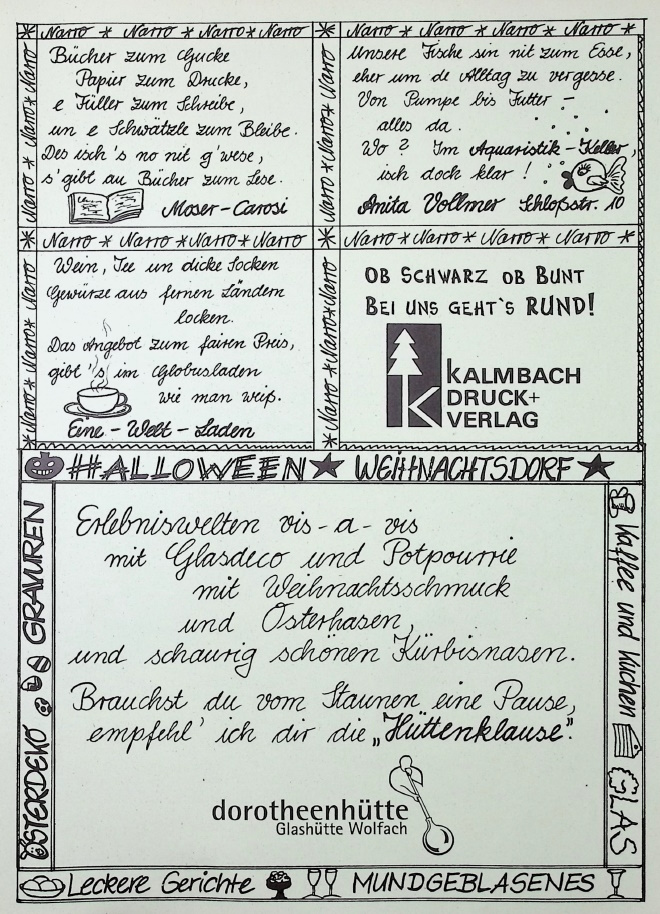 Narro * Narro * Narro * Narro
Bücher zum Gucke
Papier zum Drucke,
e Füller zum Schreibe,
un e Schwätzle zum Bleibe.
Des isch 's no nit g'wese,
s'gibt au Bücher zum Lese.
Moser-Carosi
Narro * Narro * Narro * Narro
Unsere Fische sin nit zum Esse,
eher um de Alltag zu vergesse.
Von Pumpe bis Futter -
alles da.
Wo? Im Aquaristik-Keller,
isch doch klar!
Anita Vollmer Schloßstr. 10
Narro * Narro * Narro * Narro
Wein, Tee un dicke Socken
Gewürze aus fernen Ländern
locken.
Das Angebot zum fairen Preis,
gibt 's im Globusladen
wie man weiß.
Eine-Welt-Laden
Narro * Narro * Narro * Narro *
OB SCHWARZ OB BUNT
BEI UNS GEHT`S RUND!
K
KALMBACH
DRUCK+
VERLAG
HALLOWEEN WEIHNACHTSDORF
Erlebniswelten vis-a-vis
mit Glasdeco und Potpourrie
mit Weihnachtsschmuck
und Osterhasen,
und schaurig schönen Kürbisnasen.
Brauchst du vom Staunen eine Pause,
empfehl' ich dir die „Hüttenklause".
dorotheenhütte
Glashütte Wolfach
OSTERDEKO GRAVUREN
Kaffee und Kuchen GLAS
Leckere Gerichte MUNDGEBLASENES